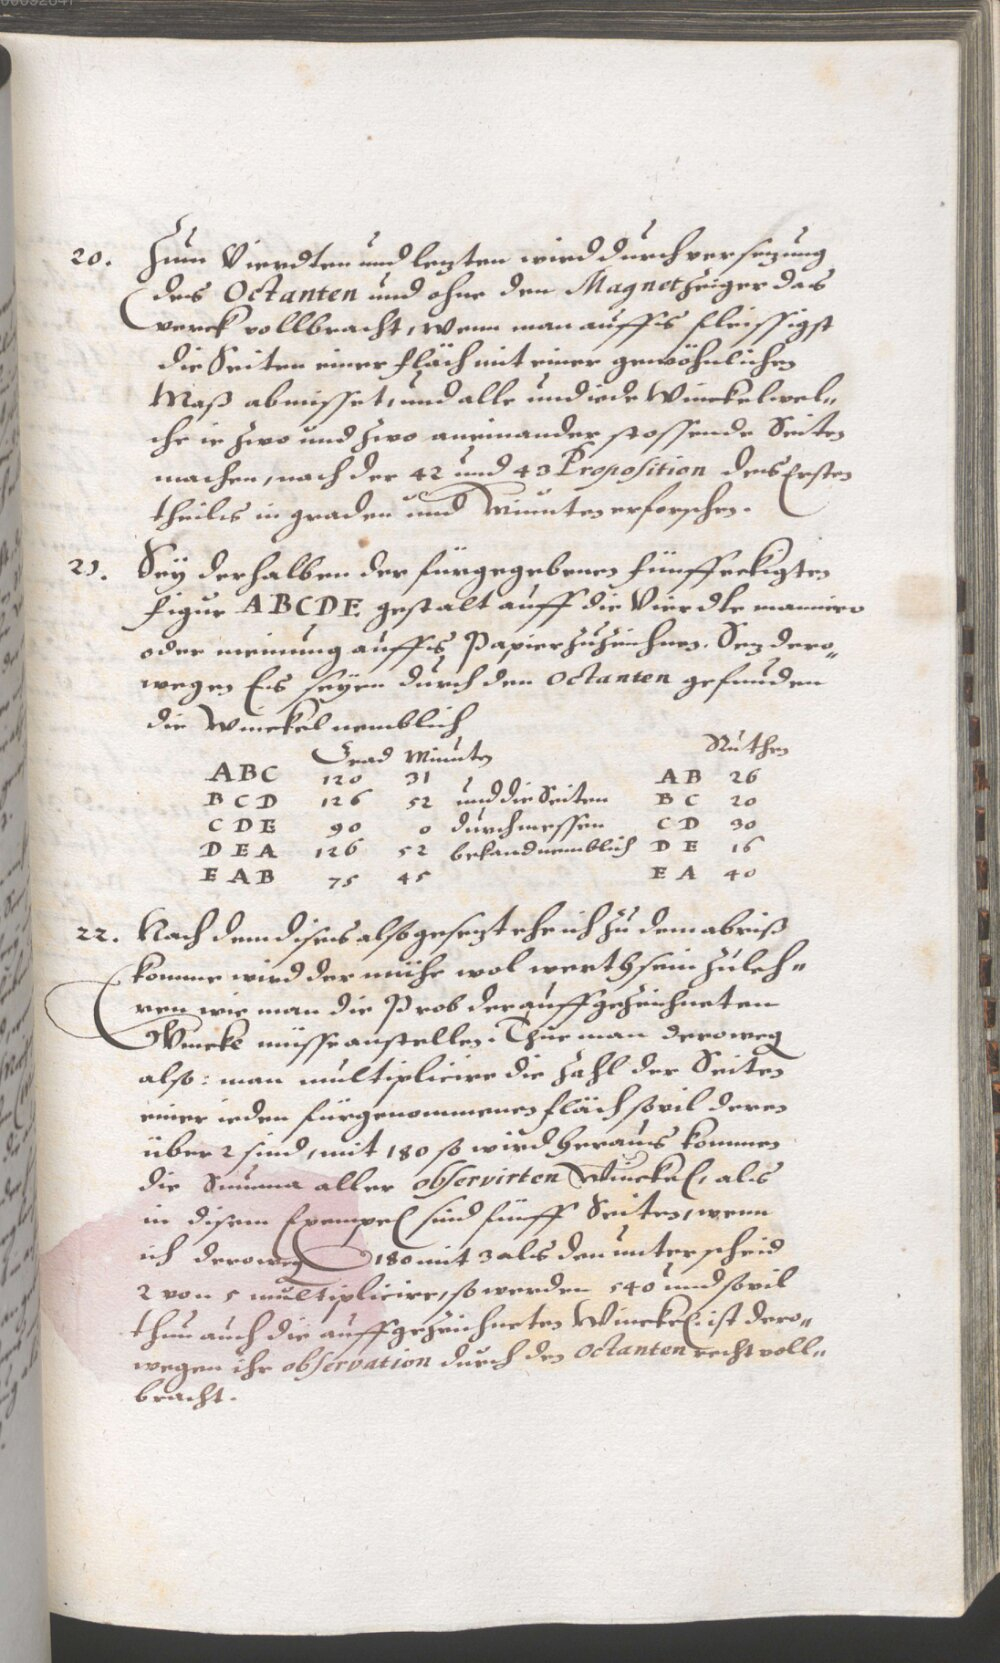 20. Zum Vierdten und lezten wird durch versezung
des Octanten und ohne den Magnetzeiger das
werck vollbracht, wenn man auffs fleissigst
die Seiten einer fläch mit einer gewöhnlichen
Maß abmisset, und alle und iede Winckel wel„
che ie zwo und zwo aneinander stossende Seiten
machen, nach der 42 und 43 Proposition des Ersten
theils in graden und Minuten erforschen.
21. Sey derhalben der fürgegebenen fünffeckigten
figur ABCDE gestalt auff die Vierdte manier
oder meinung auffs Papier zuzeichnen. Sez dero„
wegen Es seyen durch den Octanten gefunden
die Winckel nemblich
Grad Minuten Ruthen
ABC 120 31 AB 26
BCD 126 52 und die Seiten BC 20
CDE 90 0 durchmessen CD 30
DEA 126 52 bekand nemblich DE 16
EAB 75 45 EA 40
22. Nach dem dises also gesezt ehe ich zu dem abriß
komme wird der mühe wol werth sein zuleh„
ren wie man die Prob der auffgezeichneten
Winckel müsse anstellen. Thue man deroweg
also: man multiplicire die zahl der Seiten
einer ieden fürgenommenen fläch sovil deren
über 2 sind, mit 180 so wird heraus kommen
die Summa aller observirten Winckel, als
in disem Exempel sind fünff Seiten, wenn
ich deroweg 180 mit 3 als den unterscheid
2 von 5 multiplicire, so werden 540 und sovil
thun auch die auffgezeichneten Winckel, ist dero„
wegen ihr observation durch den Octanten recht voll„
bracht.